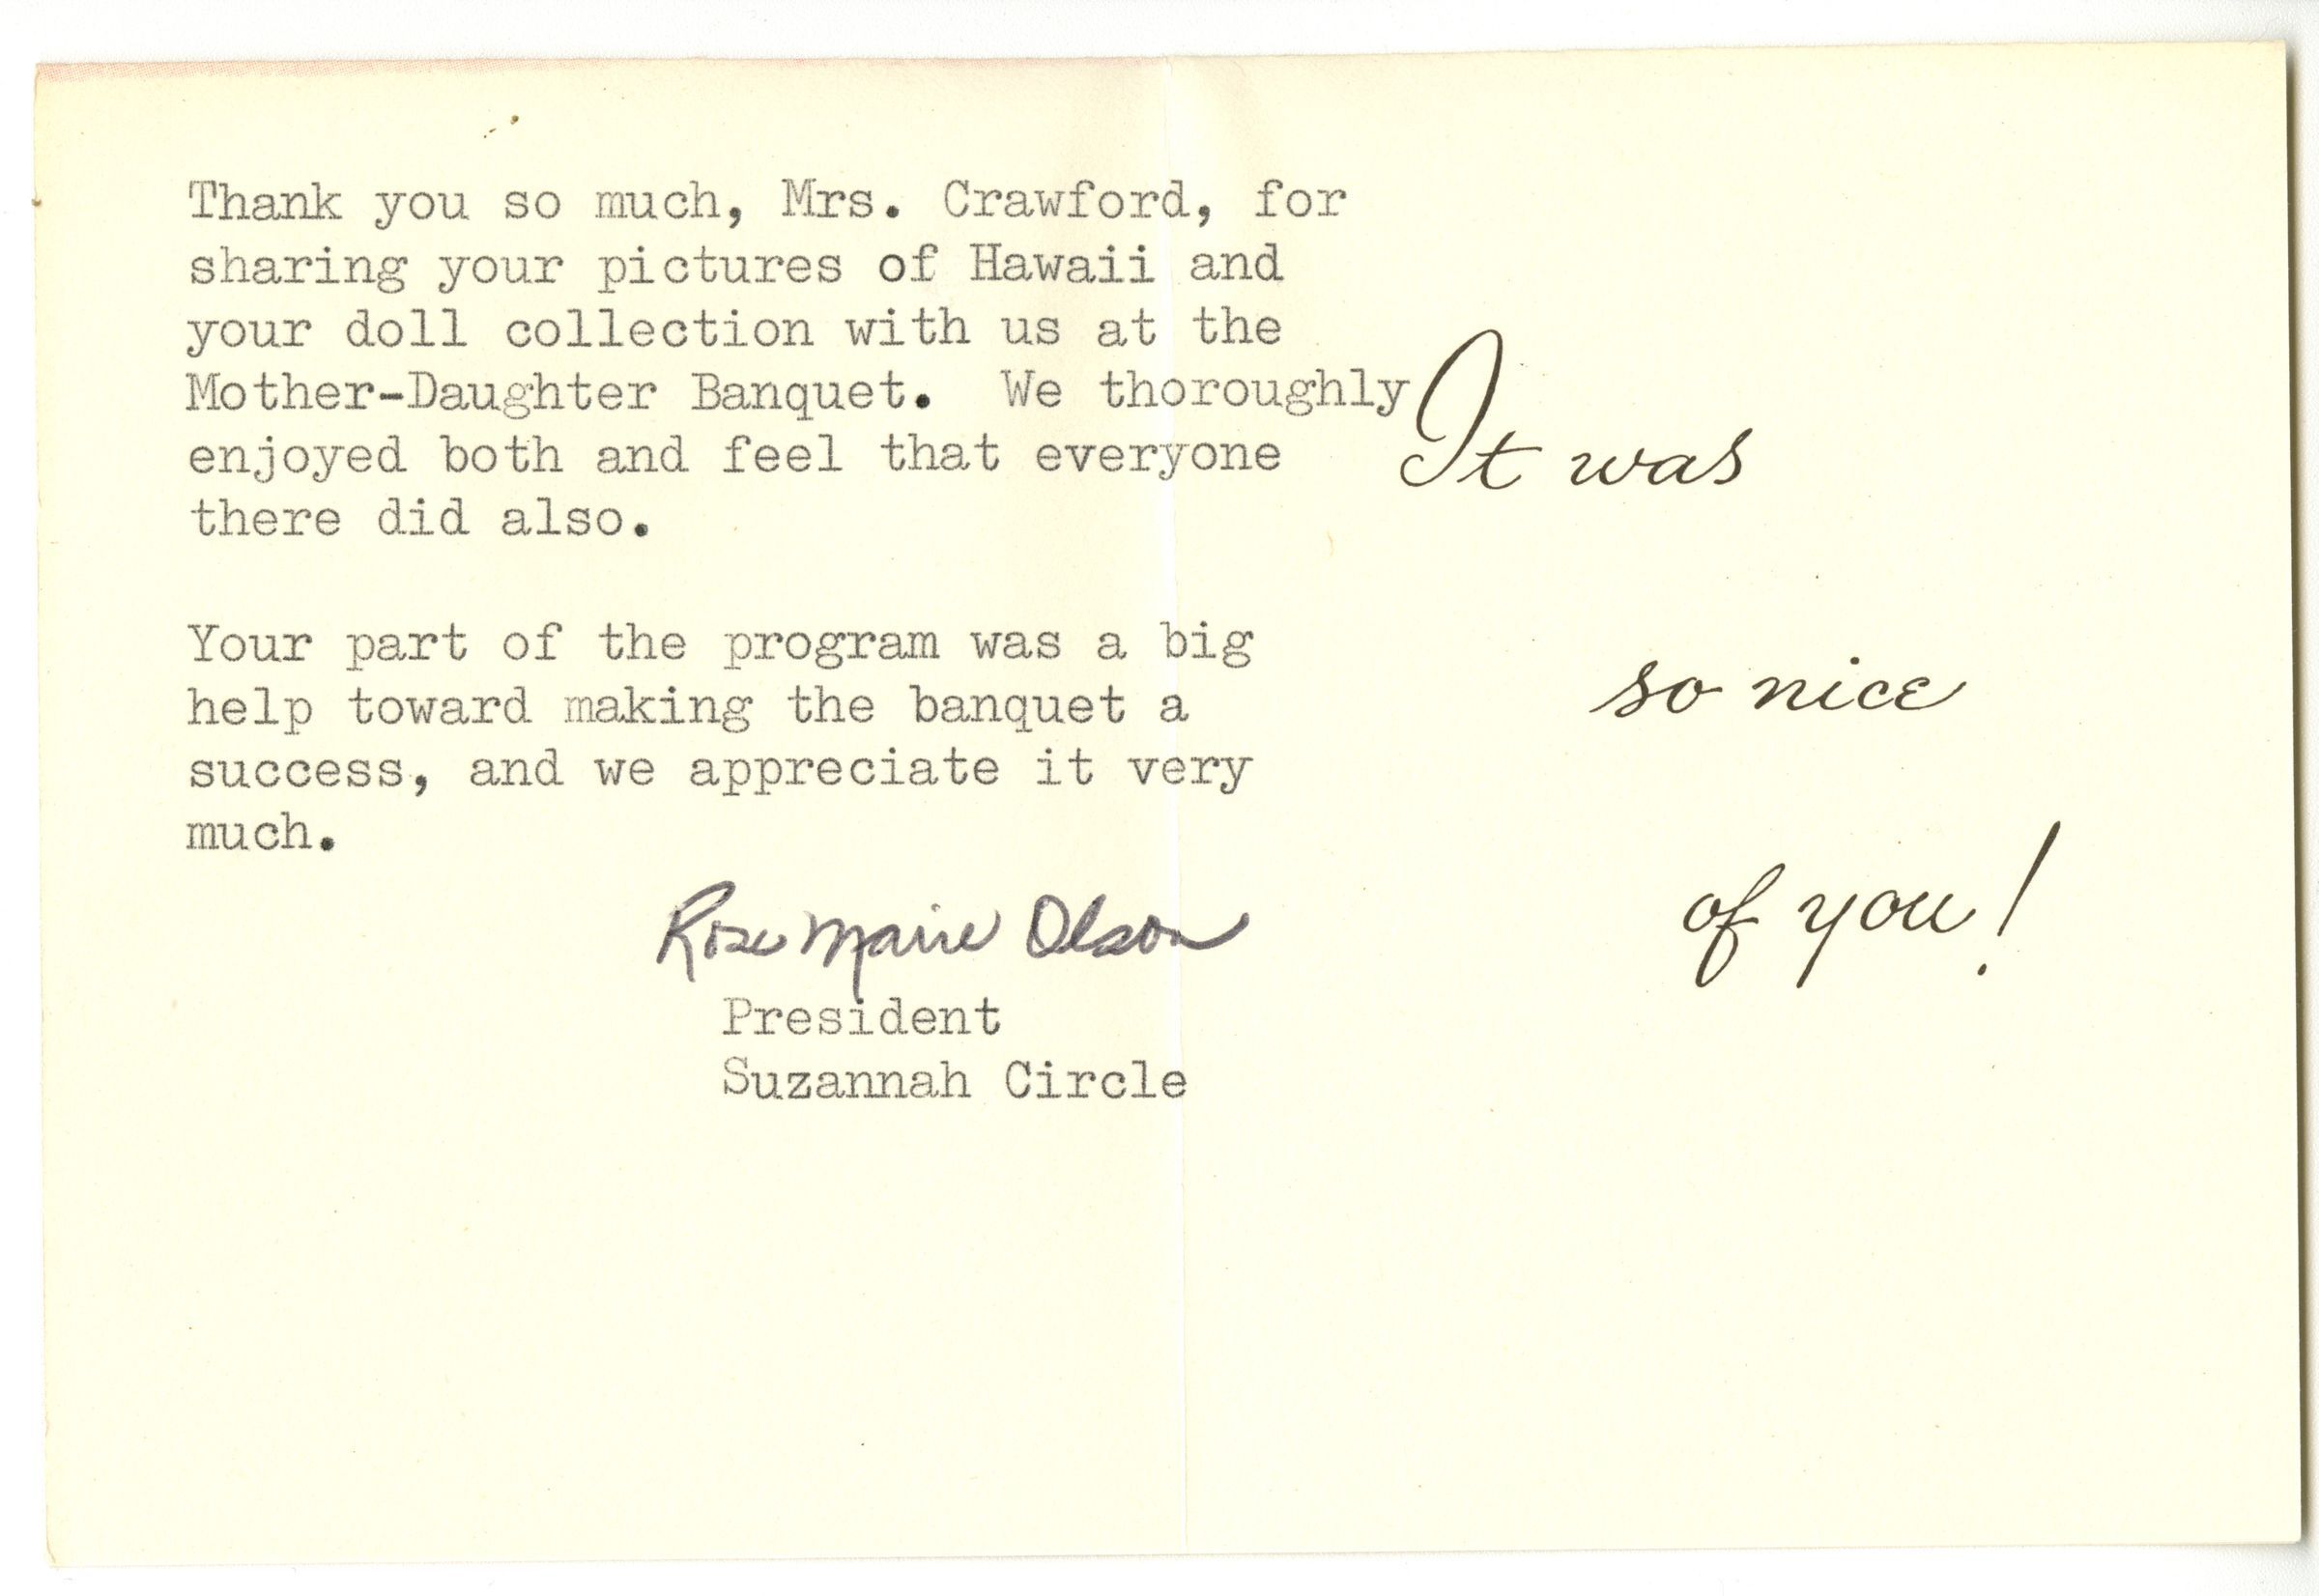 Thank you so much, Mrs. Crawford, for
sharing your pictures of Hawaii and
your doll collection with us at the
Mother-Daughter Banquet.  We thoroughly
enjoyed both and feel that everyone
there did also.
Your part of the program was a big
help toward making the banquet a
success, and we appreciate it very
much.
Rose Marie Olson
President
Suzannah Circle
It was
so nice
of you!